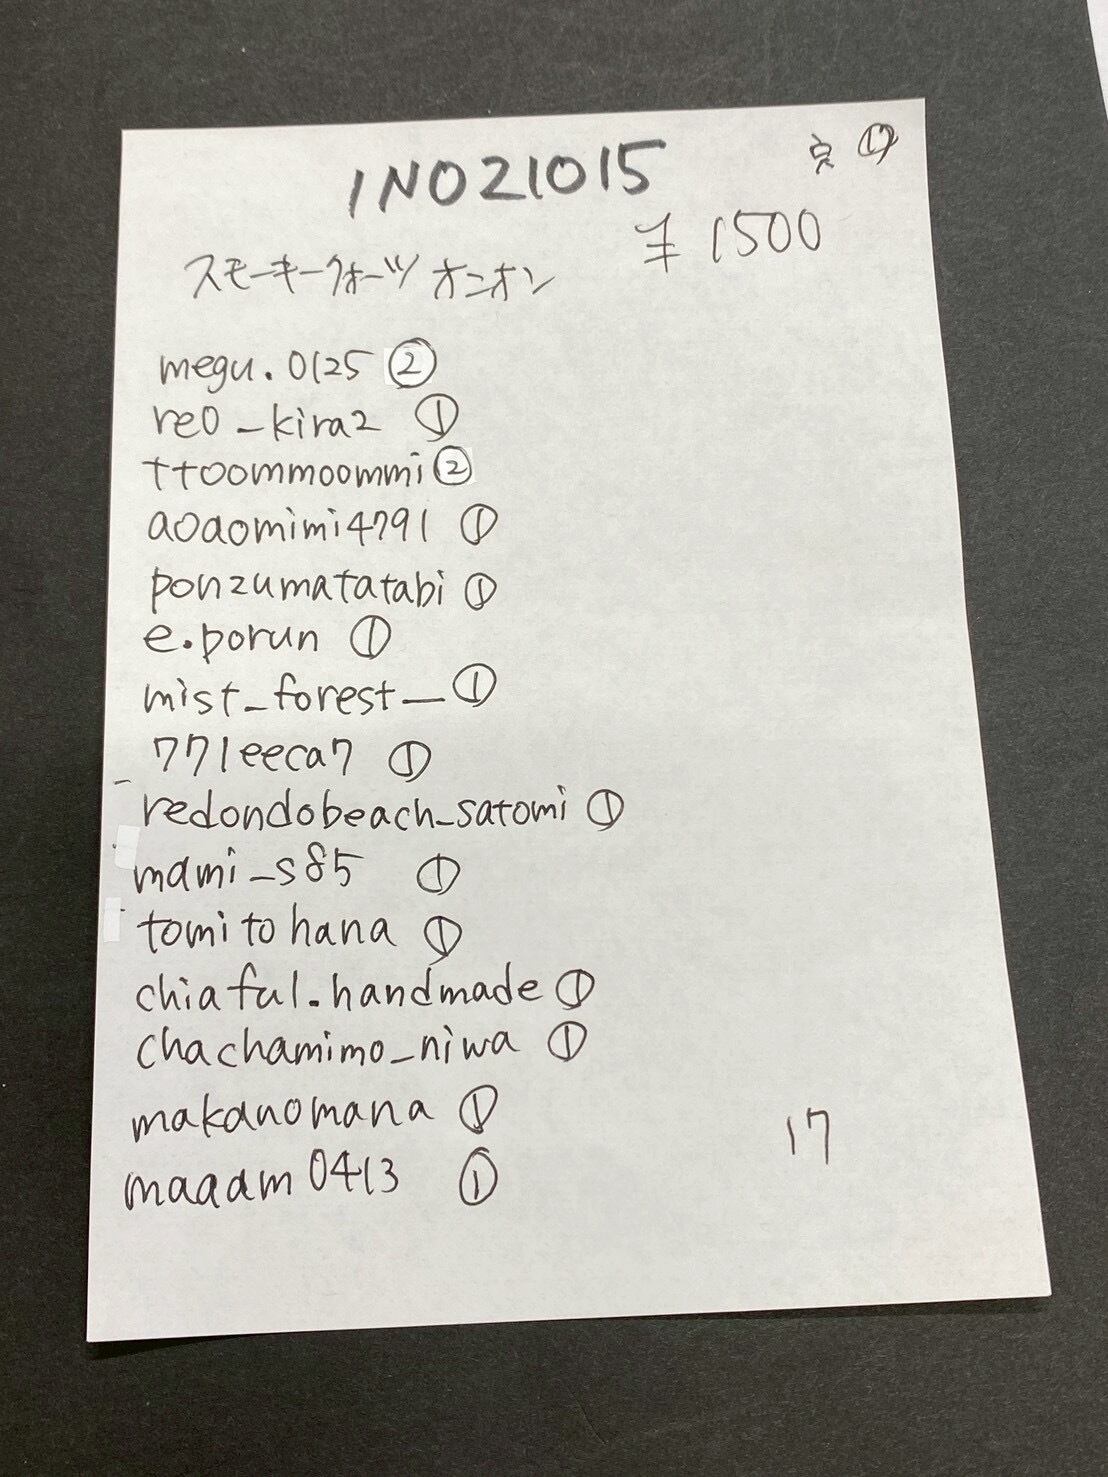 1N021015
⑰
¥1500
スモーキークォーツ オニオン
megu.0125 ②
re0_kira2 ①
ttoommoommi ②
aoaomimi4791 ①
ponzumatatabi ①
e.porun ①
mist_forest_ ①
771eeca7 ①
redondobeach_satomi ①
mami_s85 ①
tomitohana ①
chiaful.handmade ①
chachamimo_niwa ①
makanomana ①
maaam0413 ①
17